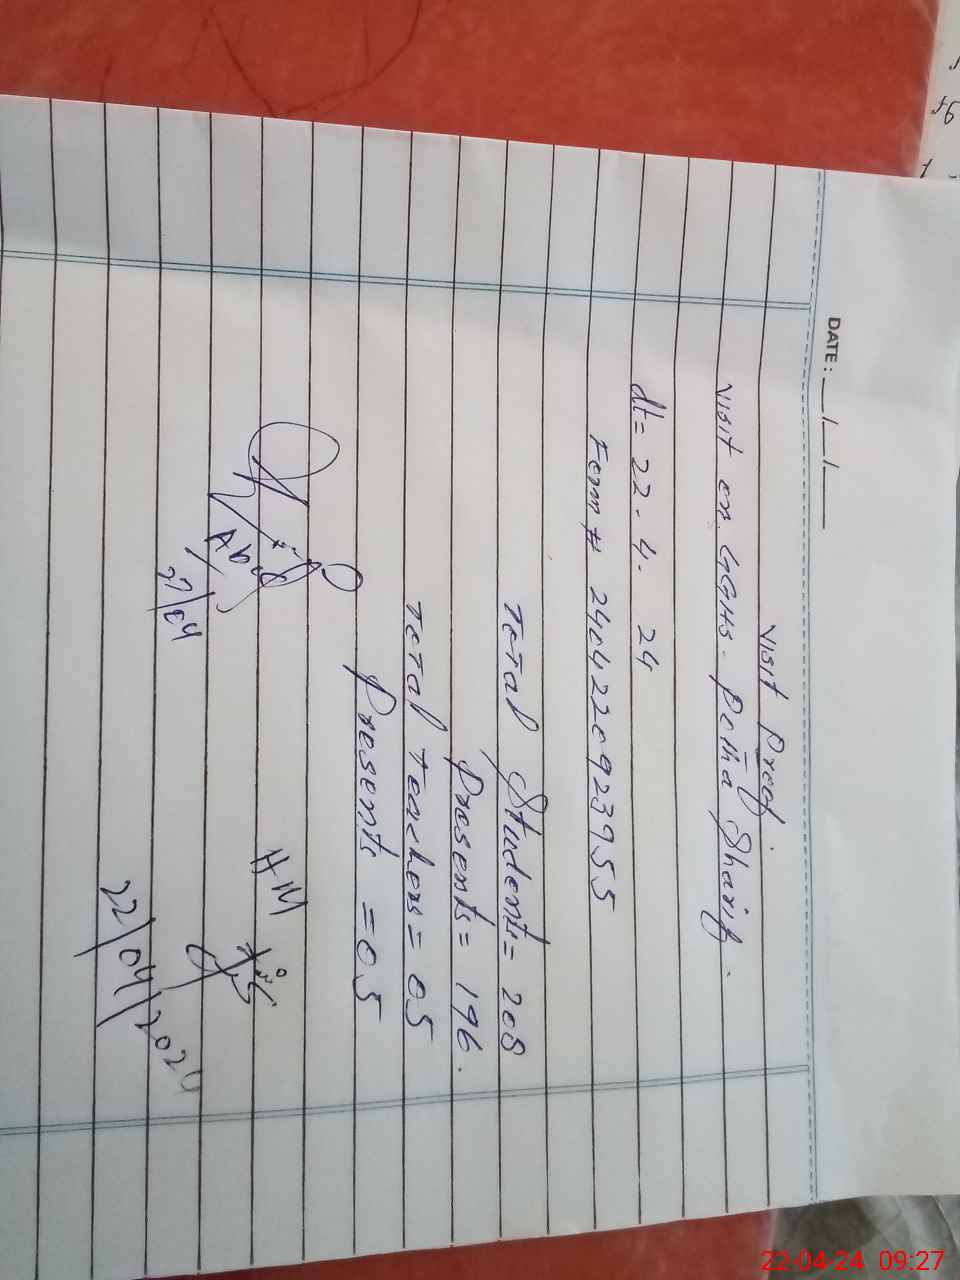 DATE: __/__/____
Visit Proof.
Visit on GGHS. Pelha Sharif.
dt = 22 . 4 . 24
Form # 240422092 3955
Total Students = 208
Presents = 196.
Total Teachers = 05
Presents = 05
Abid
22/04
HM
22/04/2024
22-04-24 09:27